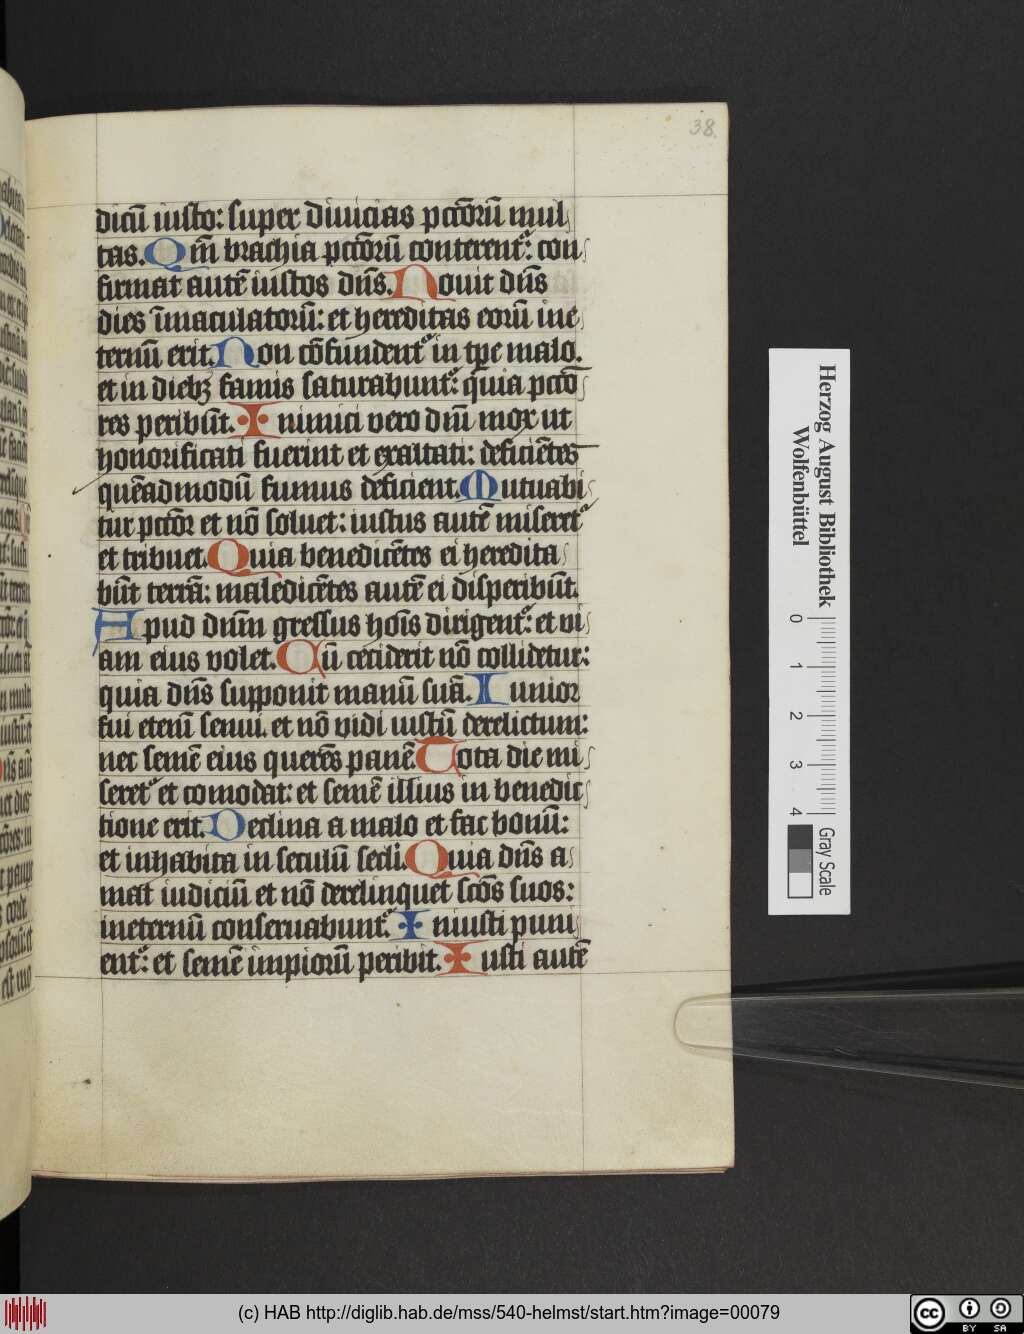 38.
dicū iusto: super diuicias pctōrū mul
tas. Qm̄ brachia pctōrū conterent᷑: con
firmat autē iustos dn̄s. Nouit dn̄s
dies īmaculatorū: et hereditas eorū ine
ternū erit. Non cōfundent᷑ in tp̄e malo.
et in diebꝫ famis saturabunt᷑: quia pctō
res peribūt. Inimici vero dn̄i mox ut
honorificati fuerint et exaltati: deficiētes
quēadmodū fumus deficient. Mutuabi
tur pctōr et nō soluet: iustus autē miseret᷑
et tribuet. Quia benedicētes ei heredita
būt terrā: maledicētes autē ei disperibūt.
Apud dn̄m gressus hoīs dirigent᷑: et vi
am eius volet. Cū ceciderit nō collidetur:
quia dn̄s supponit manū suā. Iunior
fui etenī senui. et nō vidi iustū derelictum:
nec semē eius querēs panē. Tota die mi
seret᷑ et comodat: et semē illius in benedic
tione erit. Declina a malo et fac bonū:
et inhabita in seculū secli. Quia dn̄s a
mat iudiciū et nō derelinquet scōs suos:
ineternū conseruabunt᷑. Iniusti puni
ent᷑: et semē impiorū peribit. Iusti autē
Herzog August Bibliothek
Wolfenbüttel
0 1 2 3 4
Gray Scale
(c) HAB http://diglib.hab.de/mss/540-helmst/start.htm?image=00079
cc BY SA